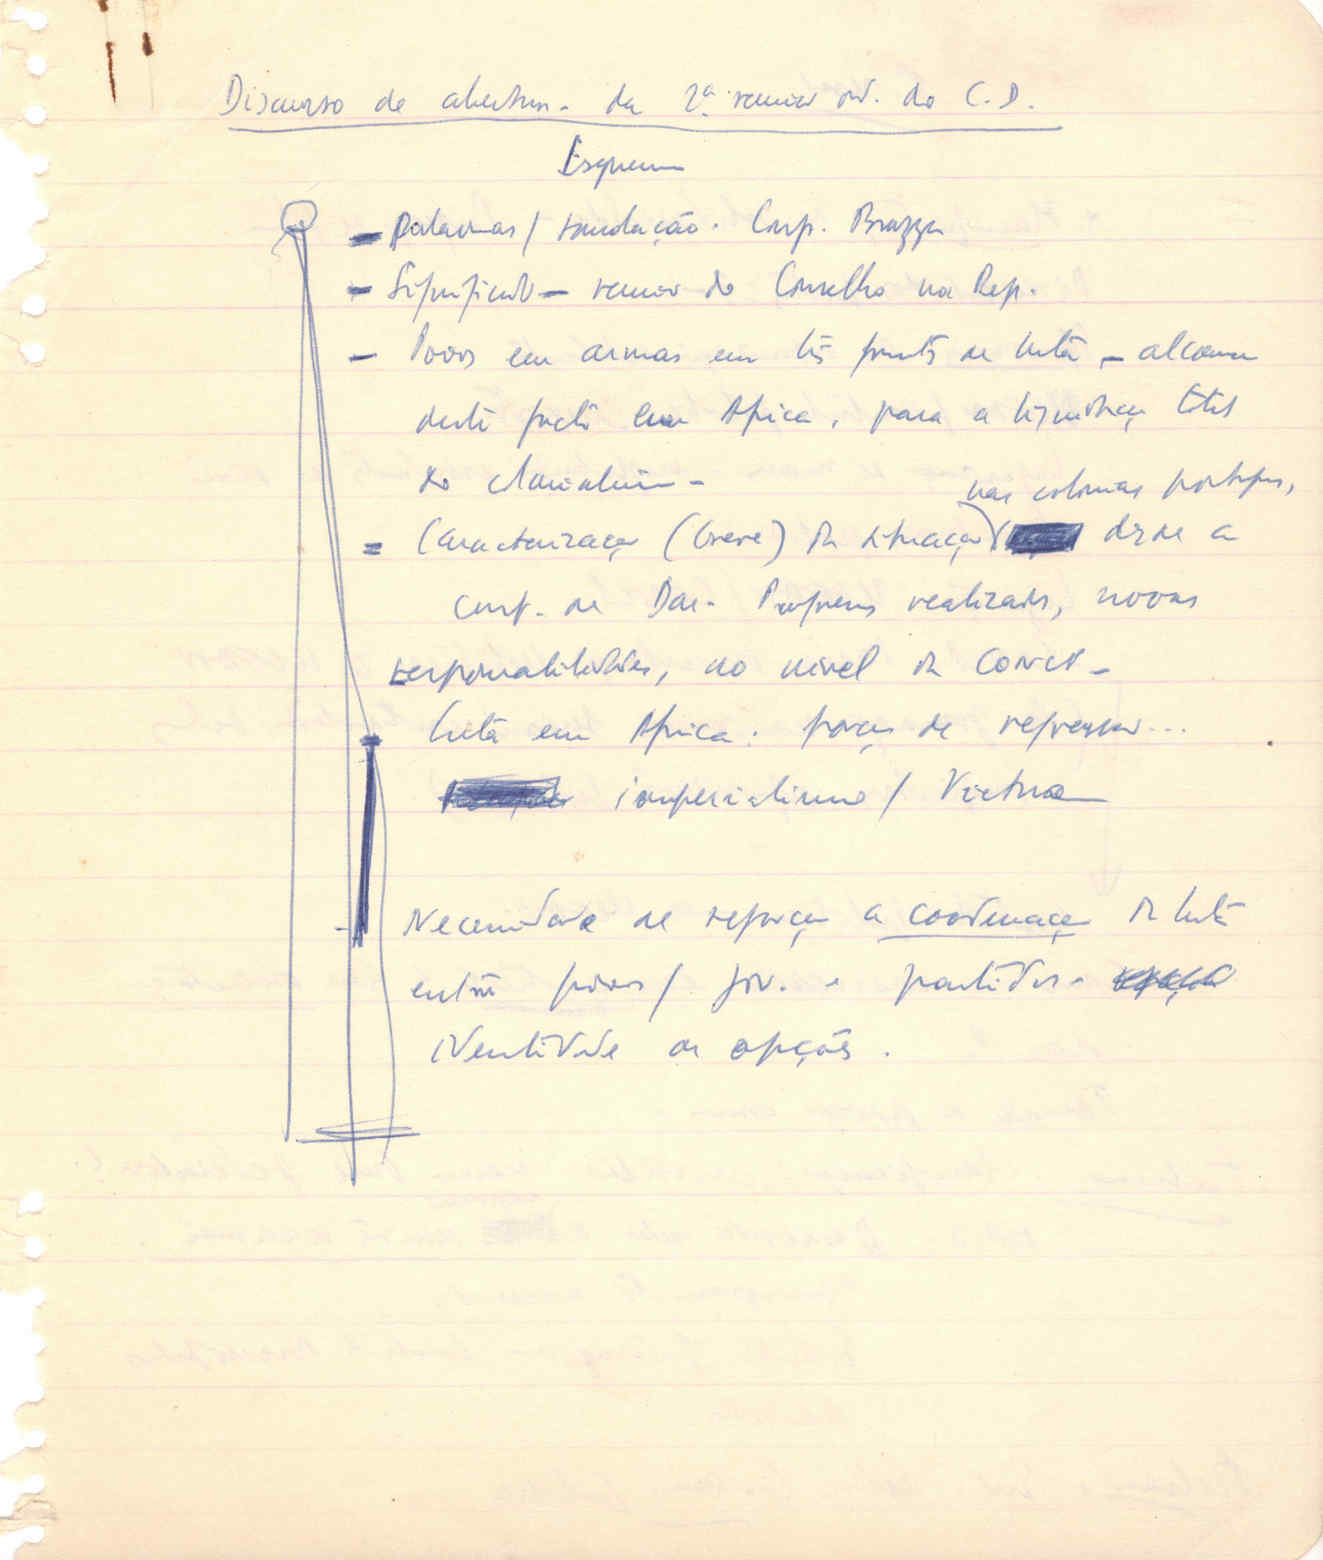 Discurso de abertura da 2ª reunião ord. do C.D.
Esquema
- Palavras / saudação. Cong. Brazza
- Significado - reunião do Conselho na Rep.
- Povos em armas em três frentes de luta - alcance
deste facto em África, para a liquidação total
do colonialismo -
nas colónias portug.,
- Caracterização (breve) da situação desde a
Conf. de Dar. Progressos realizados, novas
responsabilidades, ao nível da CONCP -
Luta em África: forças de repressão...
imperialismo / Vietname
- Necessidade de reforçar a coordenação da luta
entre povos / gov. e partidos -
identidade de opções.